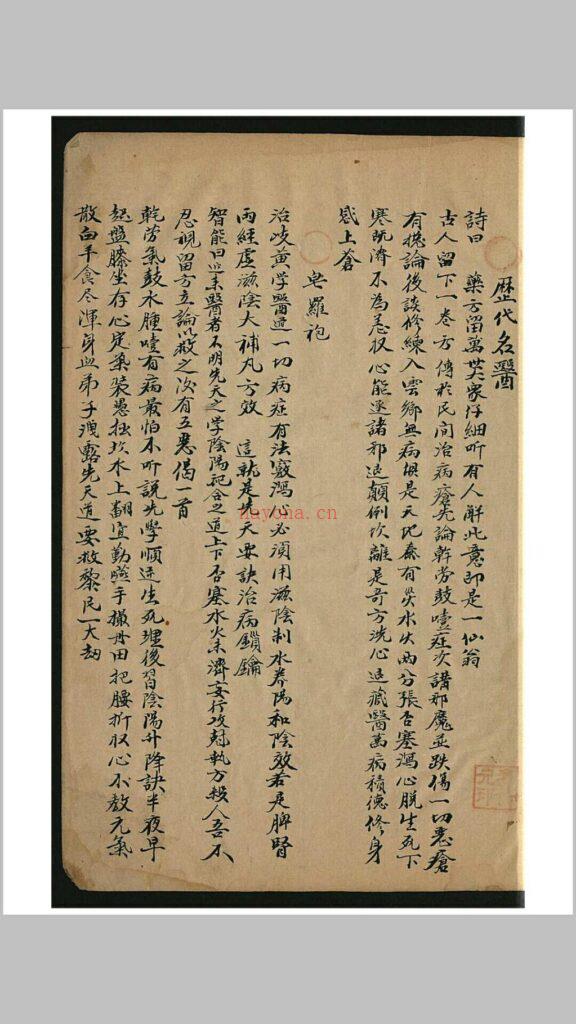 歷代名醫
詩曰 藥方留萬世眾仔細听有人解此意即是一仙翁
古人留下一卷方傳於民間治病瘡先論幹劳鼓噎症次講邪魔並跌傷一切惡瘡
有總論後談修練入雲鄉無病根是天地泰有災水火两分張否塞瀉心脫生死下
寒既濟不為忌収心能逐諸邪退顛倒坎離是奇方洗心退藏醫萬病積德修身
感上蒼
皂羅袍
治岐黄学醫道一切病症有法竅瀉心必須用滋陰制水养陽和陰效若是脾腎
两經虛滋陰大補凡方效 這就是先天要訣治病鎖鑰
智能曰業醫者不明先天之学陰陽配合之道上下否塞水火未濟妄行攻尅執方殺人吾不
忍視留方立論以救之次有五惡偈一首
乾劳氣鼓水腫噎有病最怕不听說先學順逆生死理後習陰陽升降訣半夜早
起盤膝坐存心定業装愚拙坎水上翻宜勤嚥手撮丹田把腰折収心不教元氣
散白手食尽渾身血弟子洩露先天道要救黎民一大劫
nayona.cn